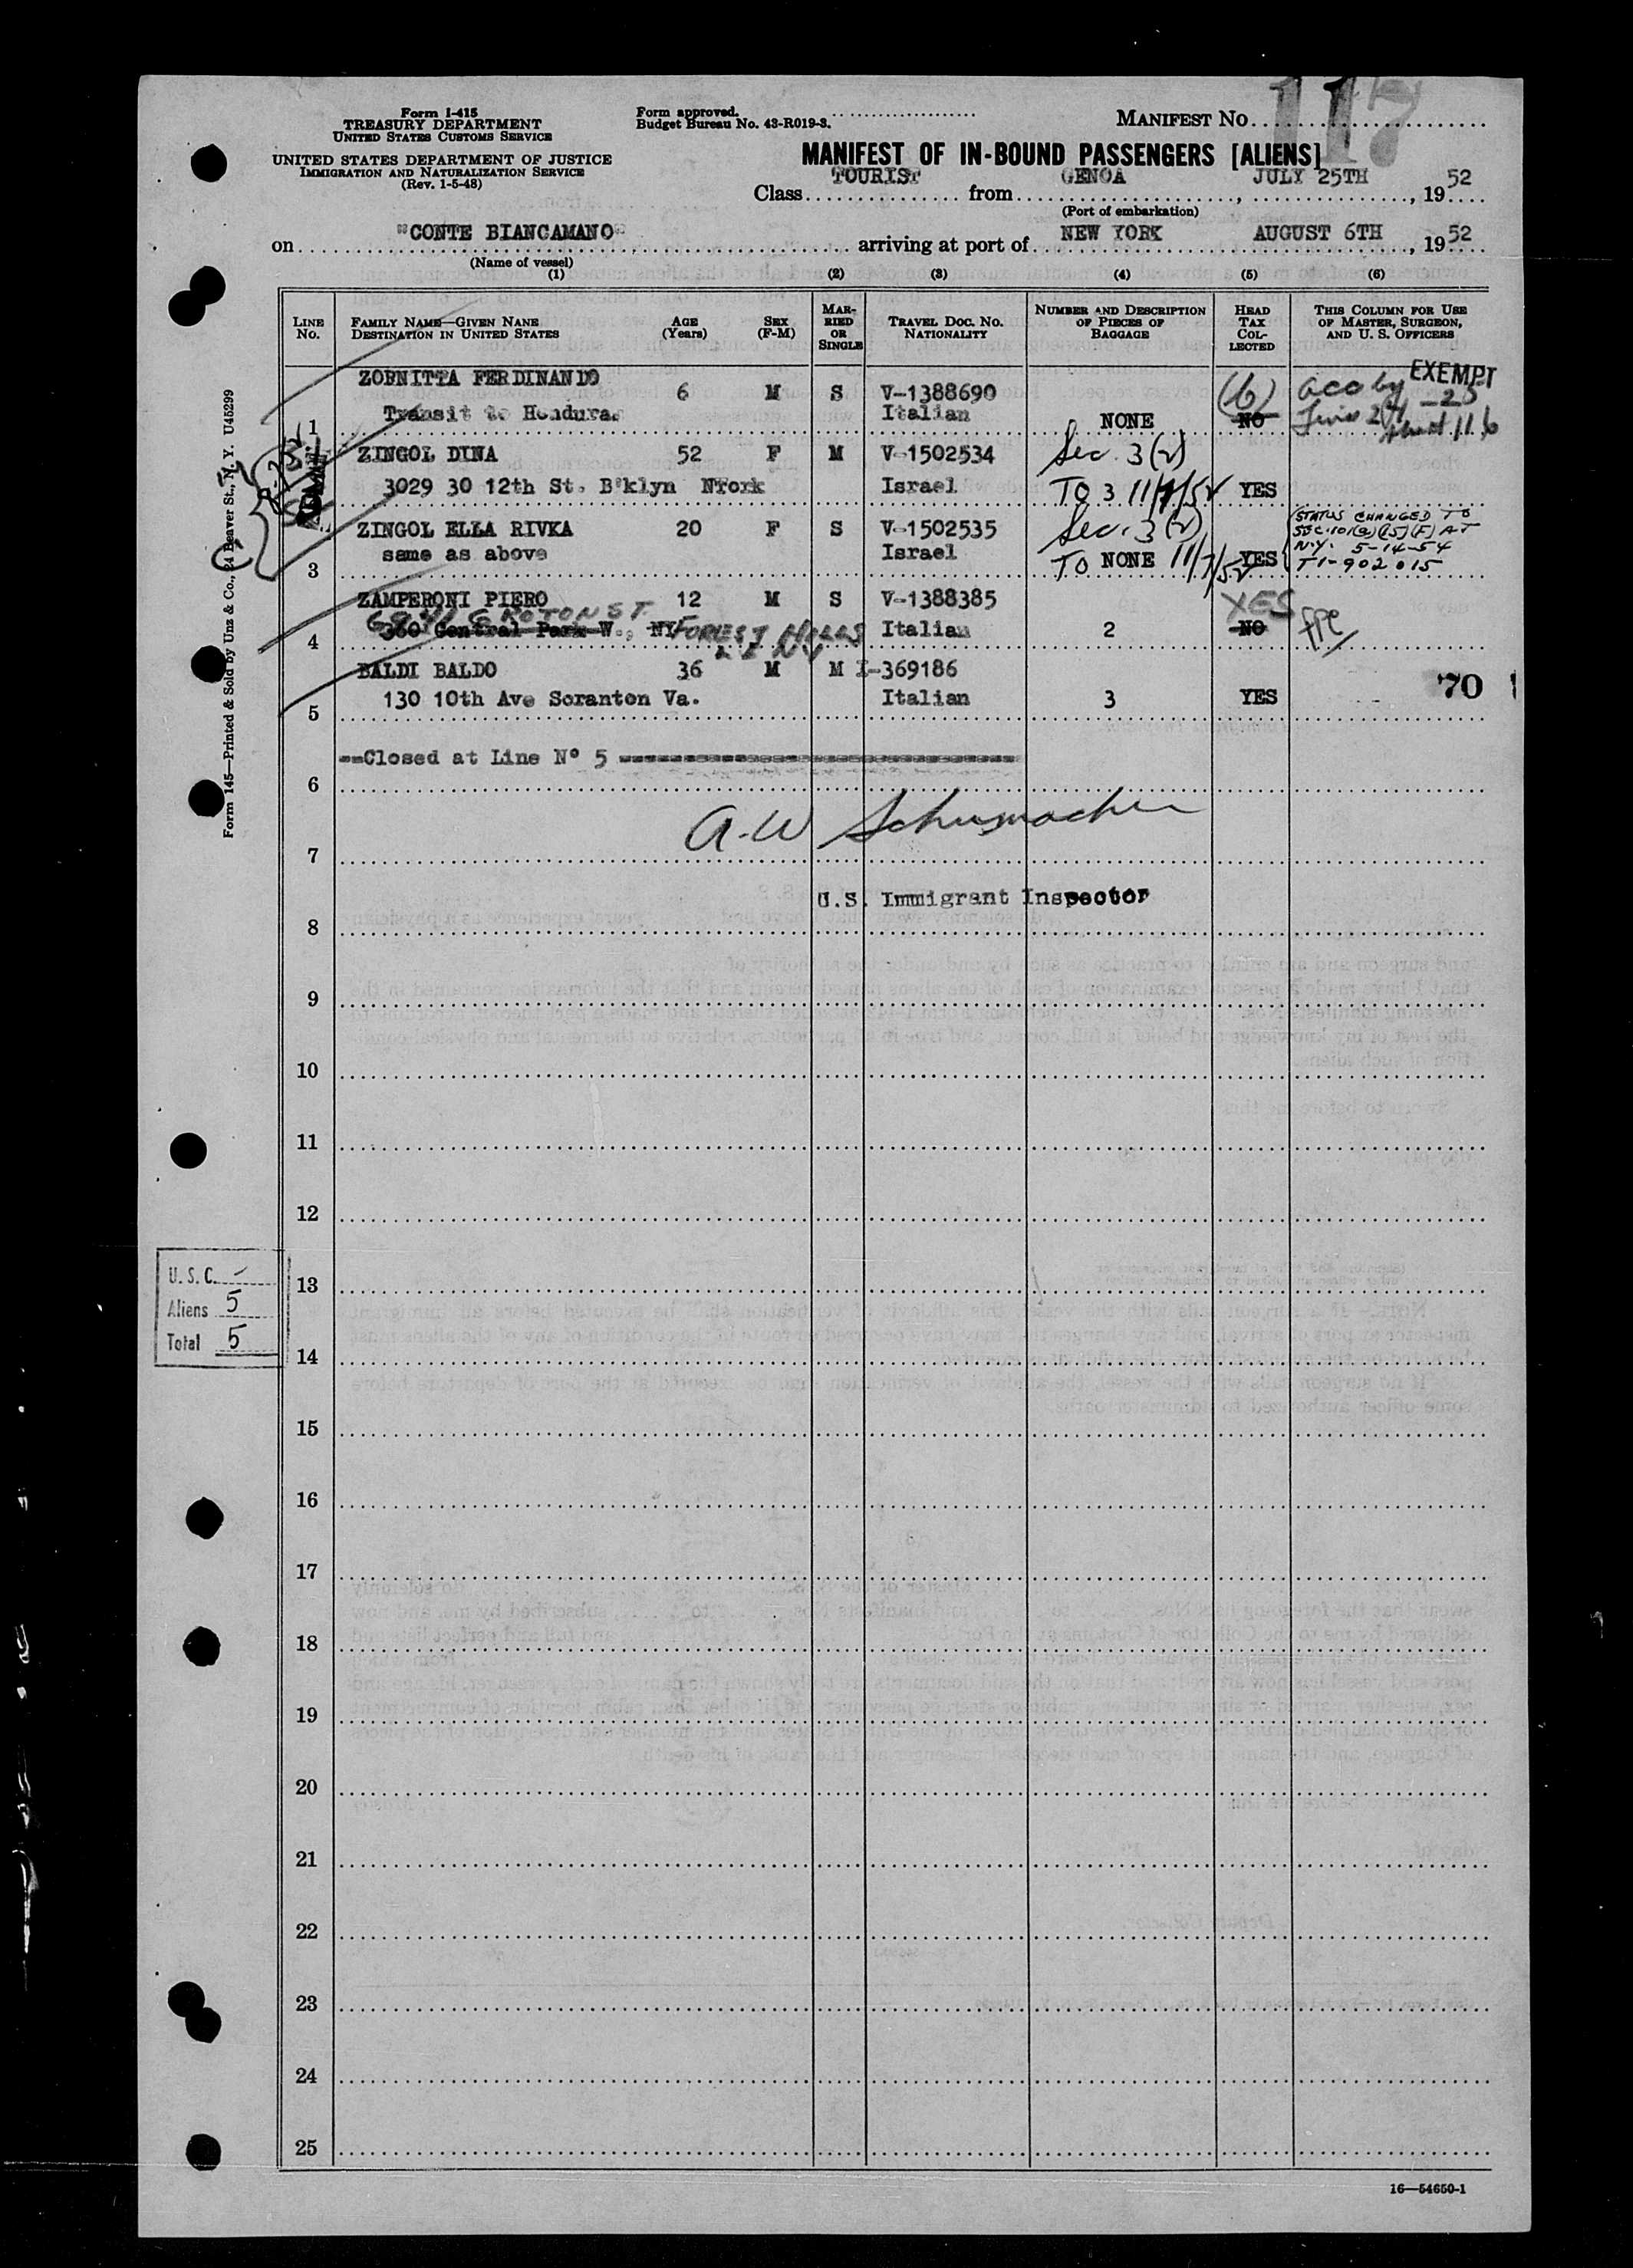 Form I-415
TREASURY DEPARTMENT
UNITED STATES CUSTOMS SERVICE
UNITED STATES DEPARTMENT OF JUSTICE
IMMIGRATION AND NATURALIZATION SERVICE
(Rev. 1-5-48)
Form approved.
Budget Bureau No. 43-R019-3.
MANIFEST NO. 117
MANIFEST OF IN-BOUND PASSENGERS [ALIENS]
Class TOURIST from GENOA, JULY 25TH, 1952
(Port of embarkation)
on "CONTE BIANCAMANO" arriving at port of NEW YORK AUGUST 6TH, 1952
(Name of vessel)
(1) (2) (3) (4) (5) (6)
LINE NO. FAMILY NAME—GIVEN NANE DESTINATION IN UNITED STATES AGE (Years) SEX (F-M) MARRIED OR SINGLE TRAVEL DOC. NO. NATIONALITY NUMBER AND DESCRIPTION OF PIECES OF BAGGAGE HEAD TAX COLLECTED THIS COLUMN FOR USE OF MASTER, SURGEON, AND U. S. OFFICERS
ZORNITTA FERDINANDO 6 M S V-1388690 (6) acc by EXEMPT
1 Transit to Honduras Italian NONE NO
ZINGOL DINA 52 F M V-1502534 Sec. 3(2)
3029 30 12th St. B'klyn NYork Israel TO 3 11/7/52 YES
ZINGOL ELLA RIVKA 20 F S V-1502535 Sec. 3(2) STATUS CHANGED TO
SEC. 101(a)(15)(F) AT
same as above Israel TO NONE 11/7/52 YES N.Y. 5-14-54
3 T1-902015
ZAMPERONI PIERO 12 M S V-1388385 YES
GROTON ST.
4 360 Central Park W., NY FOREST HILLS Italian 2 NO
L I NY
BALDI BALDO 36 M M I-369186
5 130 10th Ave Soranton Va. Italian 3 YES '70
--Closed at Line Nº 5
6
A.W Schumacher
7
U.S. Immigrant Inspector
8
9
10
11
12
13
14
15
16
17
18
19
20
21
22
23
24
25
U. S. C. -
Aliens 5
Total 5
Form 145—Printed & Sold by Unz & Co., 24 Beaver St., N. Y. U45299
16—54650-1